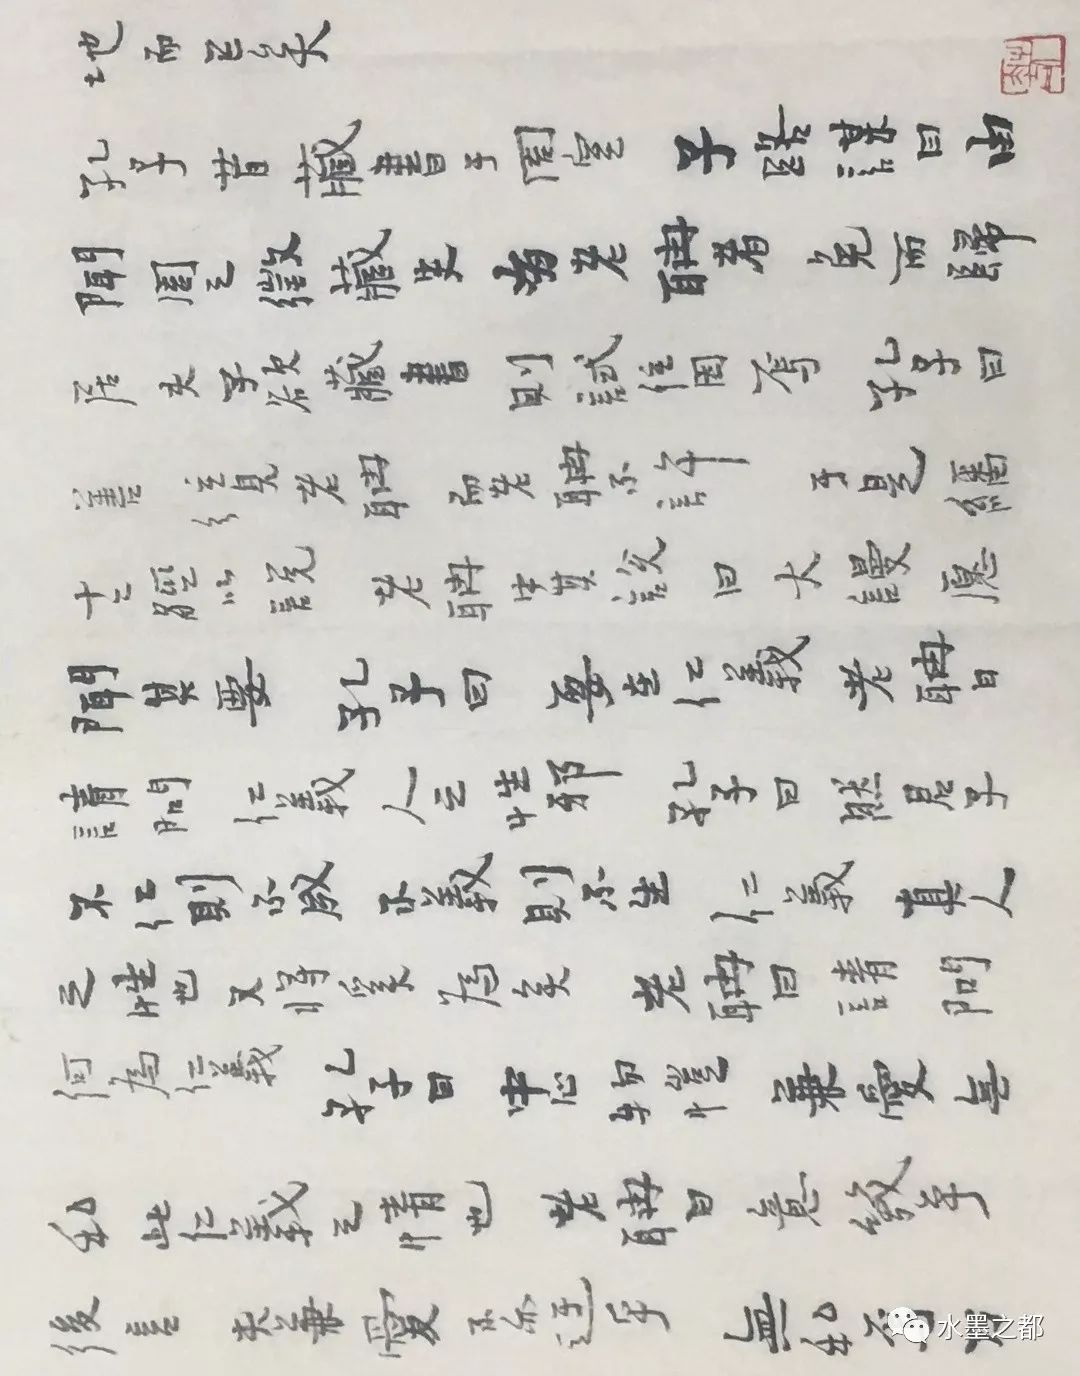 地而已矣
孔子昔藏書于周室 子路謀曰由
聞周之徵藏史 有老聃者 免而歸
居夫子欲藏書 則試往因焉 孔子曰
善 往見老聃 而老聃不許 于是繙
十二經以說 老聃中其說 曰大謾願
聞其要 孔子曰 要在仁義 老聃曰
請問 仁義人之性邪 孔子曰 然君子
不仁則不成 不義則不生 仁義 真人
之性也又將奚為矣 老聃曰請問
何為仁義 孔子曰 中心物愷 兼愛無
私此仁義之情也 老聃曰意幾乎
後言 夫兼愛不亦迂乎 無私
水墨之都